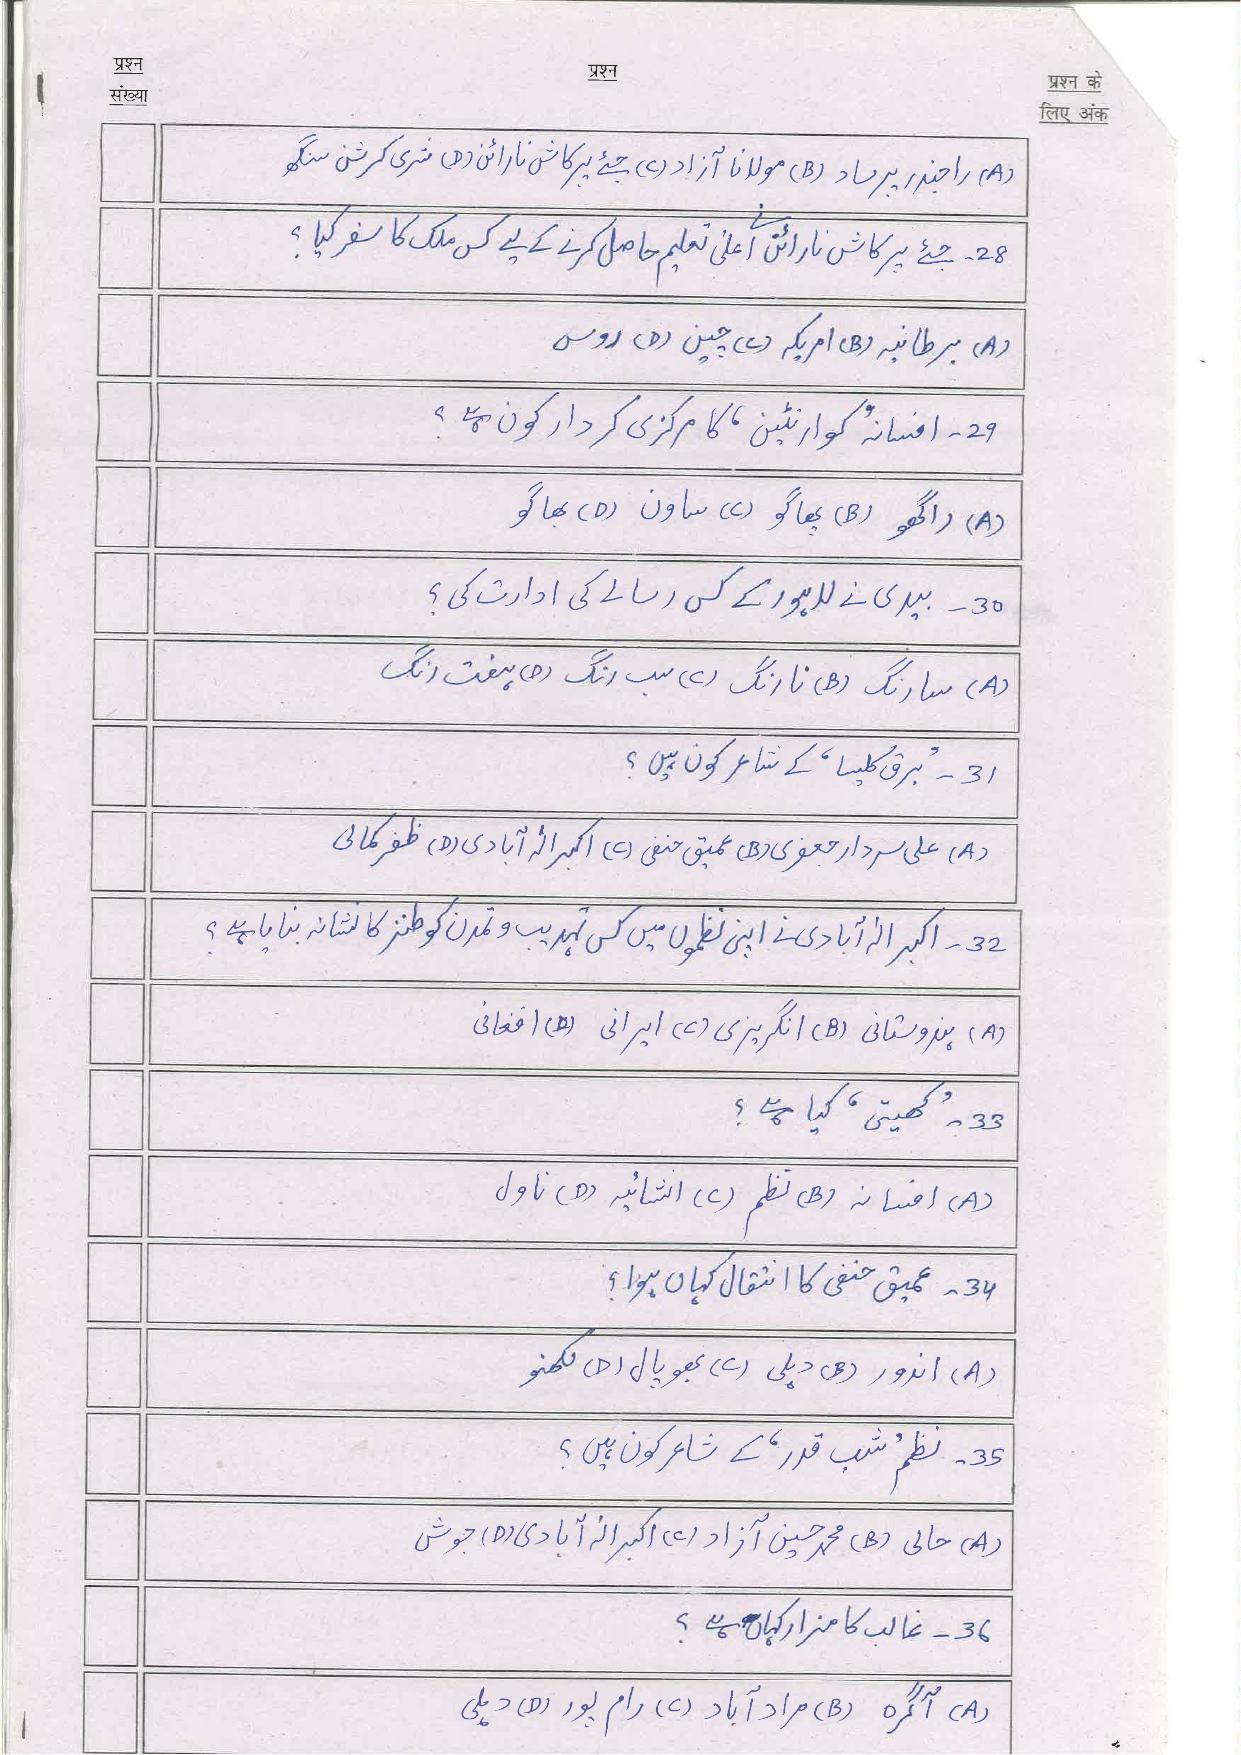 प्रश्न संख्या
प्रश्न
प्रश्न के लिए अंक
(A) راجندر پرساد (B) مولانا آزاد (C) جئے پرکاش نارائن (D) شری کرشن سنگھ
28۔ جئے پرکاش نارائن نے اعلیٰ تعلیم حاصل کرنے کے لیے کس ملک کا سفر کیا؟
(A) برطانیہ (B) امریکہ (C) چین (D) روس
29۔ افسانہ ’کوارنٹین‘ کا مرکزی کردار کون ہے؟
(A) راگھو (B) پھاگو (C) ساون (D) بھاگو
30۔ بیدی نے لاہور کے کس رسالے کی ادارت کی؟
(A) سارنگ (B) نارنگ (C) سب رنگ (D) ہفت رنگ
31۔ ’برق کلیسا‘ کے شاعر کون ہیں؟
(A) علی سردار جعفری (B) عمیق حنفی (C) اکبر الہ آبادی (D) ظفر کمالی
32۔ اکبر الہ آبادی نے اپنی نظموں میں کس تہذیب و تمدن کو طنز کا نشانہ بنایا ہے؟
(A) ہندوستانی (B) انگریزی (C) ایرانی (D) افغانی
33۔ ’کھیتی‘ کیا ہے؟
(A) افسانہ (B) نظم (C) انشائیہ (D) ناول
34۔ عمیق حنفی کا انتقال کہاں ہوا؟
(A) اندور (B) دہلی (C) بھوپال (D) لکھنو
35۔ نظم ’شب قدر‘ کے شاعر کون ہیں؟
(A) حالی (B) محمد حسین آزاد (C) اکبر الہ آبادی (D) جوش
36۔ غالب کا مزار کہاں ہے؟
(A) آگرہ (B) مراد آباد (C) رام پور (D) دہلی